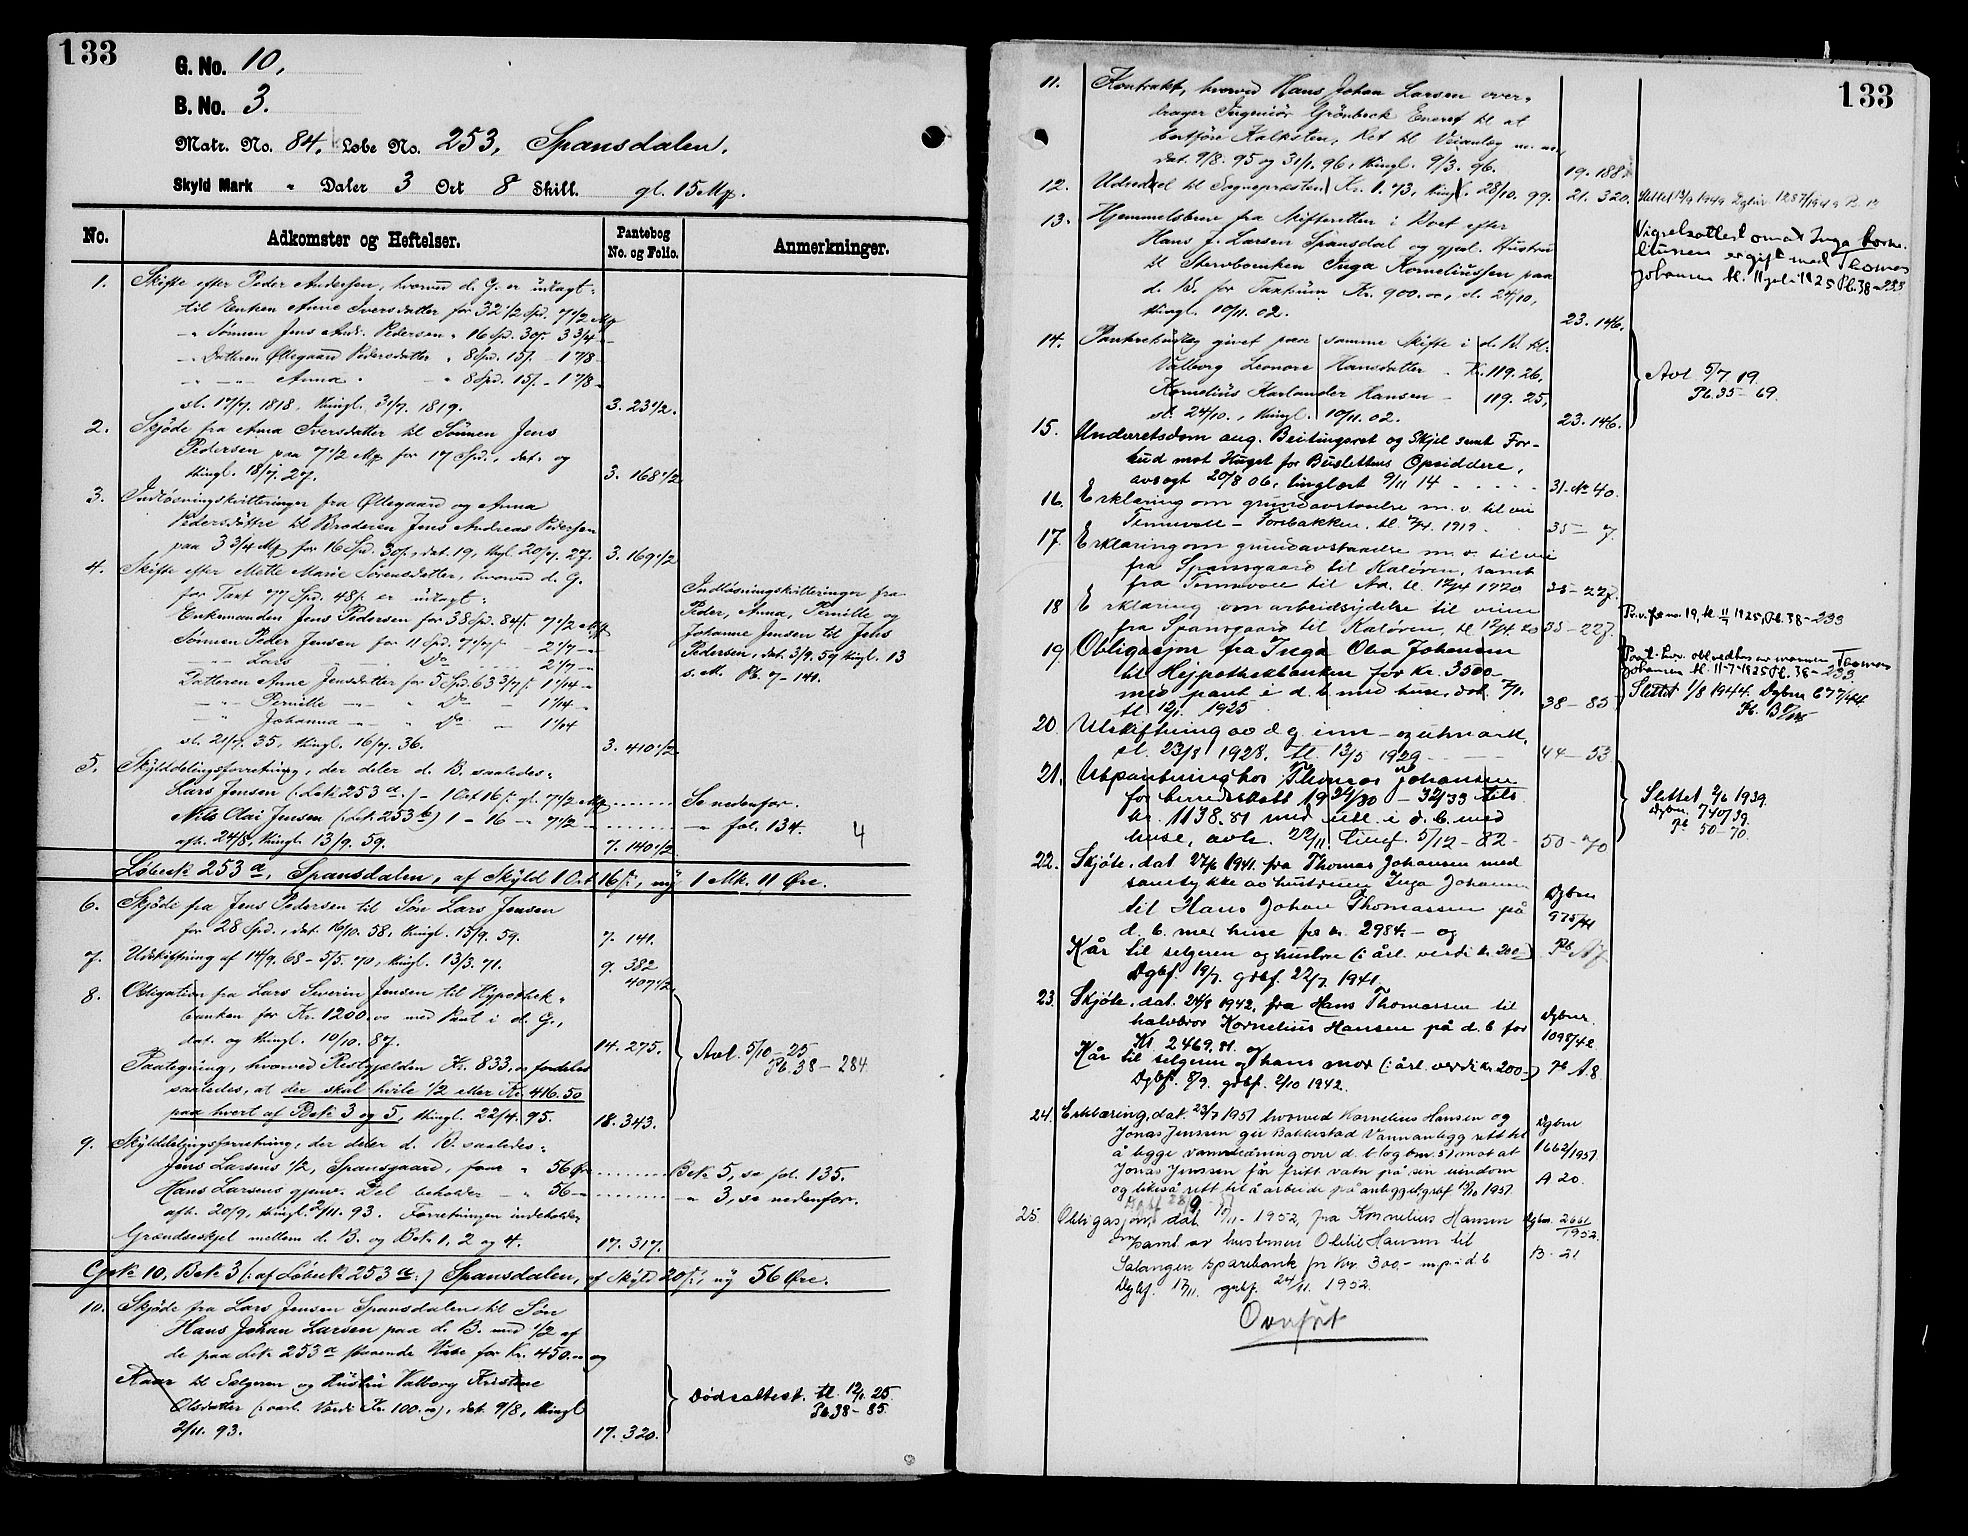 133
G. No. 10,
B. No. 3.
Matr. No. 84. Løbe No. 253, Spansdalen.
Skyld Mark „ Daler 3 Ort 8 Skill. gl. 15 Mp.
No. Adkomster og Heftelser. Pantebog No. og Folio. Anmerkninger.
1. Skifte efter Peder Andersen, hvorved d. G. er udlagt:
til Enken Anne Iversdatter for 32 1/2 Spd. 7 1/2 Mp
-„- Sønnen Jens And. Pedersen „ 16 Spd. 30 s. 3 3/4 -
-„- Datteren Øllegaard Pedersdatter „ 8 Spd. 15 s. - 1 7/8 -
-„- -„- Anna „ -„- „ 8 Spd. 15 s. - 1 7/8 -
sl. 17/7. 1818, thingl. 31/7. 1819. 3. 23 1/2.
2. Skjøde fra Anna Iversdatter til Sønnen Jens
Pedersen paa 7 1/2 Mp for 17 Spd., dat. og
thingl. 18/7. 27. 3. 168 1/2.
3. Indløsningskvitteringer fra Øllegaard og Anna
Pedersdøttre til Broderen Jens Andreas Pedersen
paa 3 3/4 Mp for 16 Spd. 30 s., dat. 19, thgl. 20/7. 27. 3. 169 1/2
4. Skifte efter Mette Marie Sørensdatter, hvorved d. G.
for Taxt 77 Spd. 48 s. er udlagt:
Enkemanden Jens Pedersen for 38 Spd. 84 s. 7 1/2 Mp
Sønnen Peder Jensen for 11 Spd. 7 1/7 s. - 2 1/7 -„-
-„- Lars -„- Do - 2 1/7 -„-
Datteren Anne Jensdatter for 5 Spd. 63 3/7 s. 1 1/14 -
-„- Pernille -„- „ Do - 1 1/14 -
-„- Johanna -„- „ Do - 1 1/14
sl. 21/7. 35, thingl. 16/7. 36. 3. 410 1/2
Indløsningskvitteringer fra
Peder, Anna, Pernille og
Johanne Jensen til Jens
Pedersen, dat. 3/9. 59 thingl. 13
s. M. Pb. 7 - 141.
5. Skylddelingsforretning, der deler d. B. saaledes:
Lars Jensen (: Løbk 253 a.) - 1 Ort 16 s. gl. 7 1/2 Mp ........ Se nedenfor.
Nils Olai Jensen (: Løbk 253 b) 1 - 16 - „ 7 1/2 - ........ -„- fol. 134. 4
afh. 24/8, thingl. 13/9. 59. 7. 140 1/2
Løbek 253 a, Spansdalen, af Skyld 1 Ort 16 s., ny 1 Mk. 11 Øre.
6. Skjøde fra Jens Pedersen til Søn Lars Jensen
for 28 Spd., dat. 16/10. 58, thingl. 13/9. 59. 7. 141.
7. Udskiftning af 14/9. 68 - 5/5. 70, thingl. 13/3. 71. 9. 382
407 1/2.
8. Obligation fra Lars Severin Jensen til Hypothek-
banken for Kr. 1200.00 med Pant i d. G.,
dat. og thingl. 10/10. 87. 14. 275. Avl. 5/10 25
Pb. 38 - 284
Paategning, hvorved Restgjælden Kr. 833,00 fordeles
saaledes, at der skal hvile 1/2 eller Kr. 416.50
paa hvert af Bøk 3 og 5, thingl. 22/4. 95. 18. 343.
9. Skylddelingsforretning, der deler d. B. saaledes:
Jens Larsens 1/2, Spansgaard, faar „ 56 Øre ........ Bøk 5, se fol. 135.
Hans Larsens gjenv. Del beholder - „ 56 - ........ -„- 3, se nedenfor.
afh. 20/9, thingl. 2/11. 93. Forretningen indeholder
Grændseskjel mellem d. B. og Bøk 1, 2 og 4. 17. 317.
Grk 10, Bøk 3 (: af Løbek 253 a :) Spansdalen, af Skyld 20 s., ny 56 Øre.
10. Skjøde fra Lars Jensen Spansdalen til Søn
Hans Johan Larsen paa d. B. med 1/2 af
de paa Løbk 253 a staaende Huse for Kr. 450.00 og
Kaar til Sælgeren og Hustru Valborg Kristine
Olsdatter (: aarl. Værdi Kr. 100.00), dat. 9/8, thingl
2/11. 93. 17. 320.
Dødsattest. tl. 12/1. 25.
Pb. 38 - 85.
133
11. Kontrakt, hvorved Hans Johan Larsen over-
drager Ingeniør Grönbeck Eneret til at
bortføre Kalksten, Ret til Veianlæg m. m.
dat. 9/8. 95 og 31/1. 96, thingl. 9/3. 96. 19. 188
12. Udmaal til Sognepræsten Kr. 1.73, thingl. 28/10. 99. 21. 320. Slettet 13/9 1949 Dgbnr 1287/1949 B. 12
13. Hjemmelsbrev fra Skifteretten i Boet efter
Hans J. Larsen Spansdal og gjenl. Hustru
til Stervboenken Inga Korneliussen paa
d. B. for Taxtsum Kr. 900.00, sl. 24/10,
thingl. 10/11. 02. 23. 146.
Vigselsattest om at Inga Korne-
liussen er gift med Thomas
Johansen tl. 11 juli 1925 Pb. 38 - 233
14. Panteheftelse givet paa samme Skifte i d. B. til:
Valborg Leonore Hansdatter - Kr. 119. 26,
Kornelius Karlander Hansen - 119. 25,
sl. 24/10., thingl. 10/11. 02. 23. 146.
Avl 5/7 19.
Pb. 35 - 69.
15. Underretsdom ang. Beitingsret og Skjel samt For-
bud mot Hugst for Buslettens Opsiddere,
avsagt 20/8 06, tinglæst 9/11 14 - - - - 31. No 40.
16. Erklæring om grundavstaaelse m. v. til vei
Tennevoll - Fossbakken, tl. 7/4. 1919. 35 - 7.
17. Erklæring om grundavstaaelse m. v. til vei
fra Spansgaard til Kaløren, samt
fra Tennevoll til Aa. tl. 12/4 1920 35 - 227.
18 Erklæring om arbeidsydelse til veien
fra Spansgaard til Kaløren, tl. 12/4. 20 35 - 227.
19. Obligasjon fra Inga Olea Johansen
til Hypothekbanken for kr. 3500 -
med pant i d. b. med huse, dat. 7/1.
tl. 12/1 1925. 38 - 85.
Slettet 1/8 1944. Dgbnr 677/44
20 Utskiftning av d. g. inn - og utmark,
sl. 23/8 1928. tl. 13/5 1929 - - - 44 - 53
21. Utpantning hos Thomas Johansen
for herredsskatt 1929/30 - 32/33 tils
kr. 1138.81 med utl. i d. b. med
huse, avh. 22/11 tingl. 5/12 - 82 - 50 - 70
Slettet 2/6 1939.
Dgbnr. 740/39.
Pb 50 - 70.
22. Skjøte, dat 27/6 1941. fra Thomas Johansen med
samtykke av hustruen Inga Johansen
til Hans Johan Thomassen på
d. b. med huse for kr. 2984. - og
Kår til selgeren og hustru (: årl. verdi kr. 200 -)
Dgbf. 19/7. grbf. 22/7 1941.
Dgbnr
975/41
Pb A7
23. Skjøte, dat. 24/8 1942, fra Hans Thomassen til
halvbror Kornelius Hansen på d. b for
Kr. 2469.81. og
Kår til selgeren og hans mor (: årl. verdi kr. 200 -)
Dgbf. 8/9. grbf. 2/10 1942.
Dgbnr.
1098/42
Pb A. 8
24. Erklæring, dat. 23/7 1951 hvorved Kornelius Hansen og
Jonas Jenssen gir Bakkestad Vannanlegg rett til
å legge vannledning over d. b (og bnr. 51 mot at
Jonas Jenssen får fritt vatn på sin eiendom
og likeså rett til å arbeide på anlegget, grbf 13/10 1951.
Dgbnr
1662/1951
A 20.
25. Obligasjon, dat. 10/11 - 1952, fra Kornelius Hansen
saml. av hustruen Oldile Hansen til
Salangen sparebank for kr. 300. - m. p. i d. b
Dgbf. 17/11. grbf. 24/11. 1952.
Dgbnr. 2661/1952.
B. 21
Overført